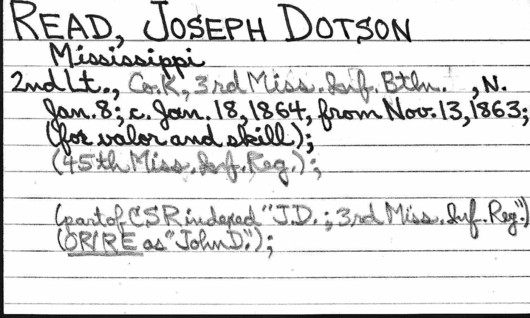 READ, JOSEPH DOTSON
Mississippi
2nd Lt., Co. K., 3rd Miss. Inf. Btln. , N.
Jan. 8; c. Jan. 18, 1864, from Nov. 13, 1863;
(for valor and skill);
(45th Miss. Inf. Reg.);
(part of CSR indexed "J.D.; 3rd Miss. Inf. Reg.")
(OR/RE as "John D.");